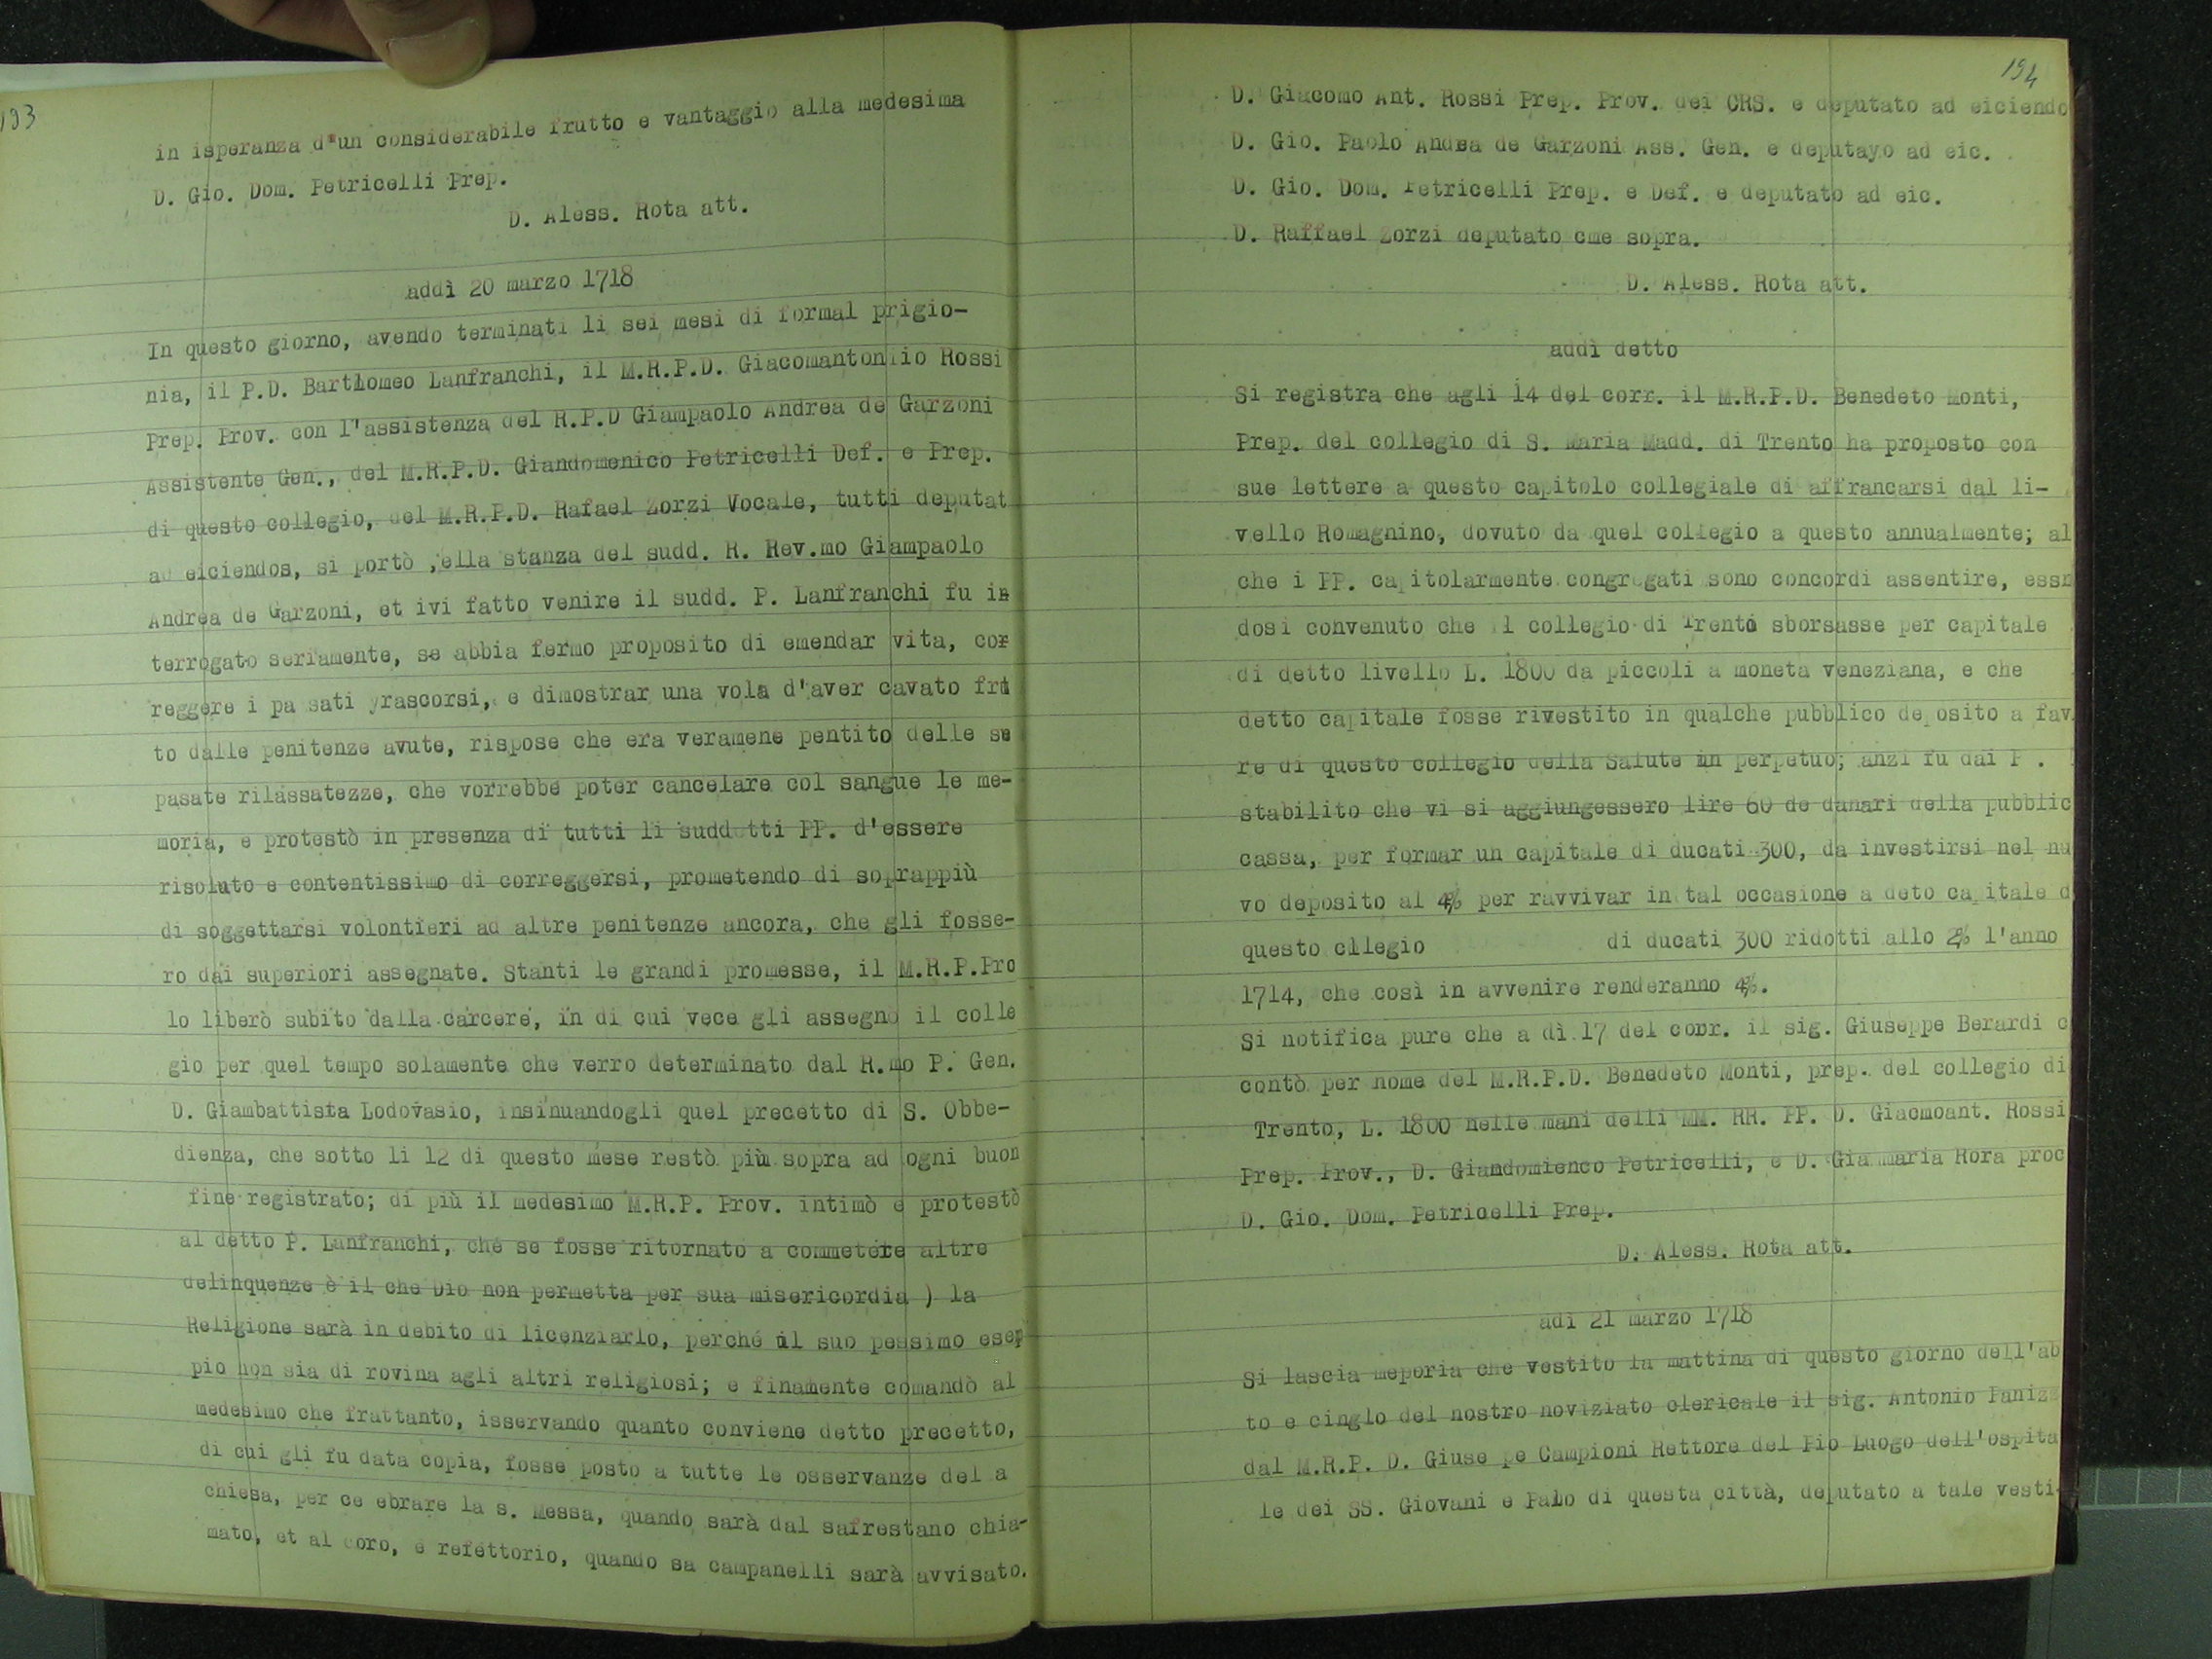 193
in isperanza d'un considerabile frutto e vantaggio alla medesima
D. Gio. Dom. Petricelli Prep.
D. Aless. Rota att.
addì 20 marzo 1718
In questo giorno, avendo terminati li sei mesi di formal prigio-
nia, il P.D. Bartlomeo Lanfranchi, il M.R.P.D. Giacomantoniio Rossi
Prep. Prov. con l'assistenza del R.P.D Giampaolo Andrea de Garzoni
Assistente Gen., del M.R.P.D. Giandomenico Petricelli Def. e Prep.
di questo collegio, del M.R.P.D. Rafael Zorzi Vocale, tutti deputat
ad eiciendos, si portò ,ella stanza del sudd. R. Rev.mo Giampaolo
Andrea de Garzoni, et ivi fatto venire il sudd. P. Lanfranchi fu in
terrogato seriamente, se abbia fermo proposito di emendar vita, cor
reggere i pa sati yrascorsi, e dimostrar una vola d'aver cavato frt
to dalle penitenze avute, rispose che era veramene pentito delle se
pasate rilassatezze, che vorrebbe poter cancelare col sangue le me-
moria, e protestò in presenza di tutti li suddetti PP. d'essere
risoluto e contentissimo di correggersi, prometendo di soprappiù
di soggettarsi volontieri ad altre penitenze ancora, che gli fosse-
ro dai superiori assegnate. Stanti le grandi promesse, il M.R.P.Pro
lo liberò subito dalla carcere, in di cui vece gli assegnò il colle
gio per quel tempo solamente che verro determinato dal R.mo P. Gen.
D. Giambattista Lodovasio, insinuandogli quel precetto di S. Obbe-
dienza, che sotto li 12 di questo mese restò più sopra ad ogni buon
fine registrato; di più il medesimo M.R.P. Prov. intimò e protestò
al detto P. Lanfranchi, che se fosse ritornato a commetere altre
delinquenze è il che Dio non permetta per sua misericordia ) la
Religione sarà in debito di licenziarlo, perché il suo pessimo esep
pio non sia di rovina agli altri religiosi; e finamente comandò al
medesimo che frattanto, isservando quanto conviene detto precetto,
di cui gli fu data copia, fosse posto a tutte le osservanze del a
chiesa, per ce ebrare la s. Messa, quando sarà dal safrestano chia-
mato, et al coro, e refettorio, quando sa campanelli sarà avvisato.
194
D. Giacomo Ant. Rossi Prep. Prov. dei CRS. e deputato ad eiciendo
D. Gio. Paolo Andea de Garzoni Ass. Gen. e deputayo ad eic.
D. Gio. Dom. Petricelli Prep. e Def. e deputato ad eic.
D. Raffael Zorzi deputato cme sopra.
D. Aless. Rota att.
addì detto
Si registra che agli 14 del corr. il M.R.P.D. Benedeto Monti,
Prep. del collegio di S. Maria Madd. di Trento ha proposto con
sue lettere a questo capitolo collegiale di affrancarsi dal li-
vello Romagnino, dovuto da quel collegio a questo annualmente; al
che i PP. capitolarmente congregati sono concordi assentire, essn
dosi convenuto che il collegio di Trento sborsasse per capitale
di detto livello L. 1800 da piccoli a moneta veneziana, e che
detto capitale fosse rivestito in qualche pubblico deposito a fav
re di questo collegio della Salute in perpetuo; anzi fu dai P .
stabilito che vi si aggiungessero lire 60 de danari della pubblic
cassa, per formar un capitale di ducati 300, da investirsi nel nu
vo deposito al 4% per ravvivar in tal occasione a deto capitale d
questo cllegio di ducati 300 ridotti allo 2% l'anno
1714, che così in avvenire renderanno 4%.
Si notifica pure che a dì 17 del corr. il sig. Giuseppe Berardi c
contò per nome del M.R.P.D. Benedeto Monti, prep. del collegio di
Trento, L. 1800 nelle mani delli MM. RR. PP. D. Giacmoant. Rossi
Prep. Prov., D. Giandomienco Petricelli, e D. Gianmaria Rora proc
D. Gio. Dom. Petricelli Prep.
D. Aless. Rota att.
adì 21 marzo 1718
Si lascia meporia che vestito la mattina di questo giorno dell'ab
to e cinglo del nostro noviziato clericale il sig. Antonio Panizz
dal M.R.P. D. Giuse pe Campioni Rettore del Pio Luogo dell'ospita
le dei SS. Giovani e Palo di questa città, deputato a tale vesti-